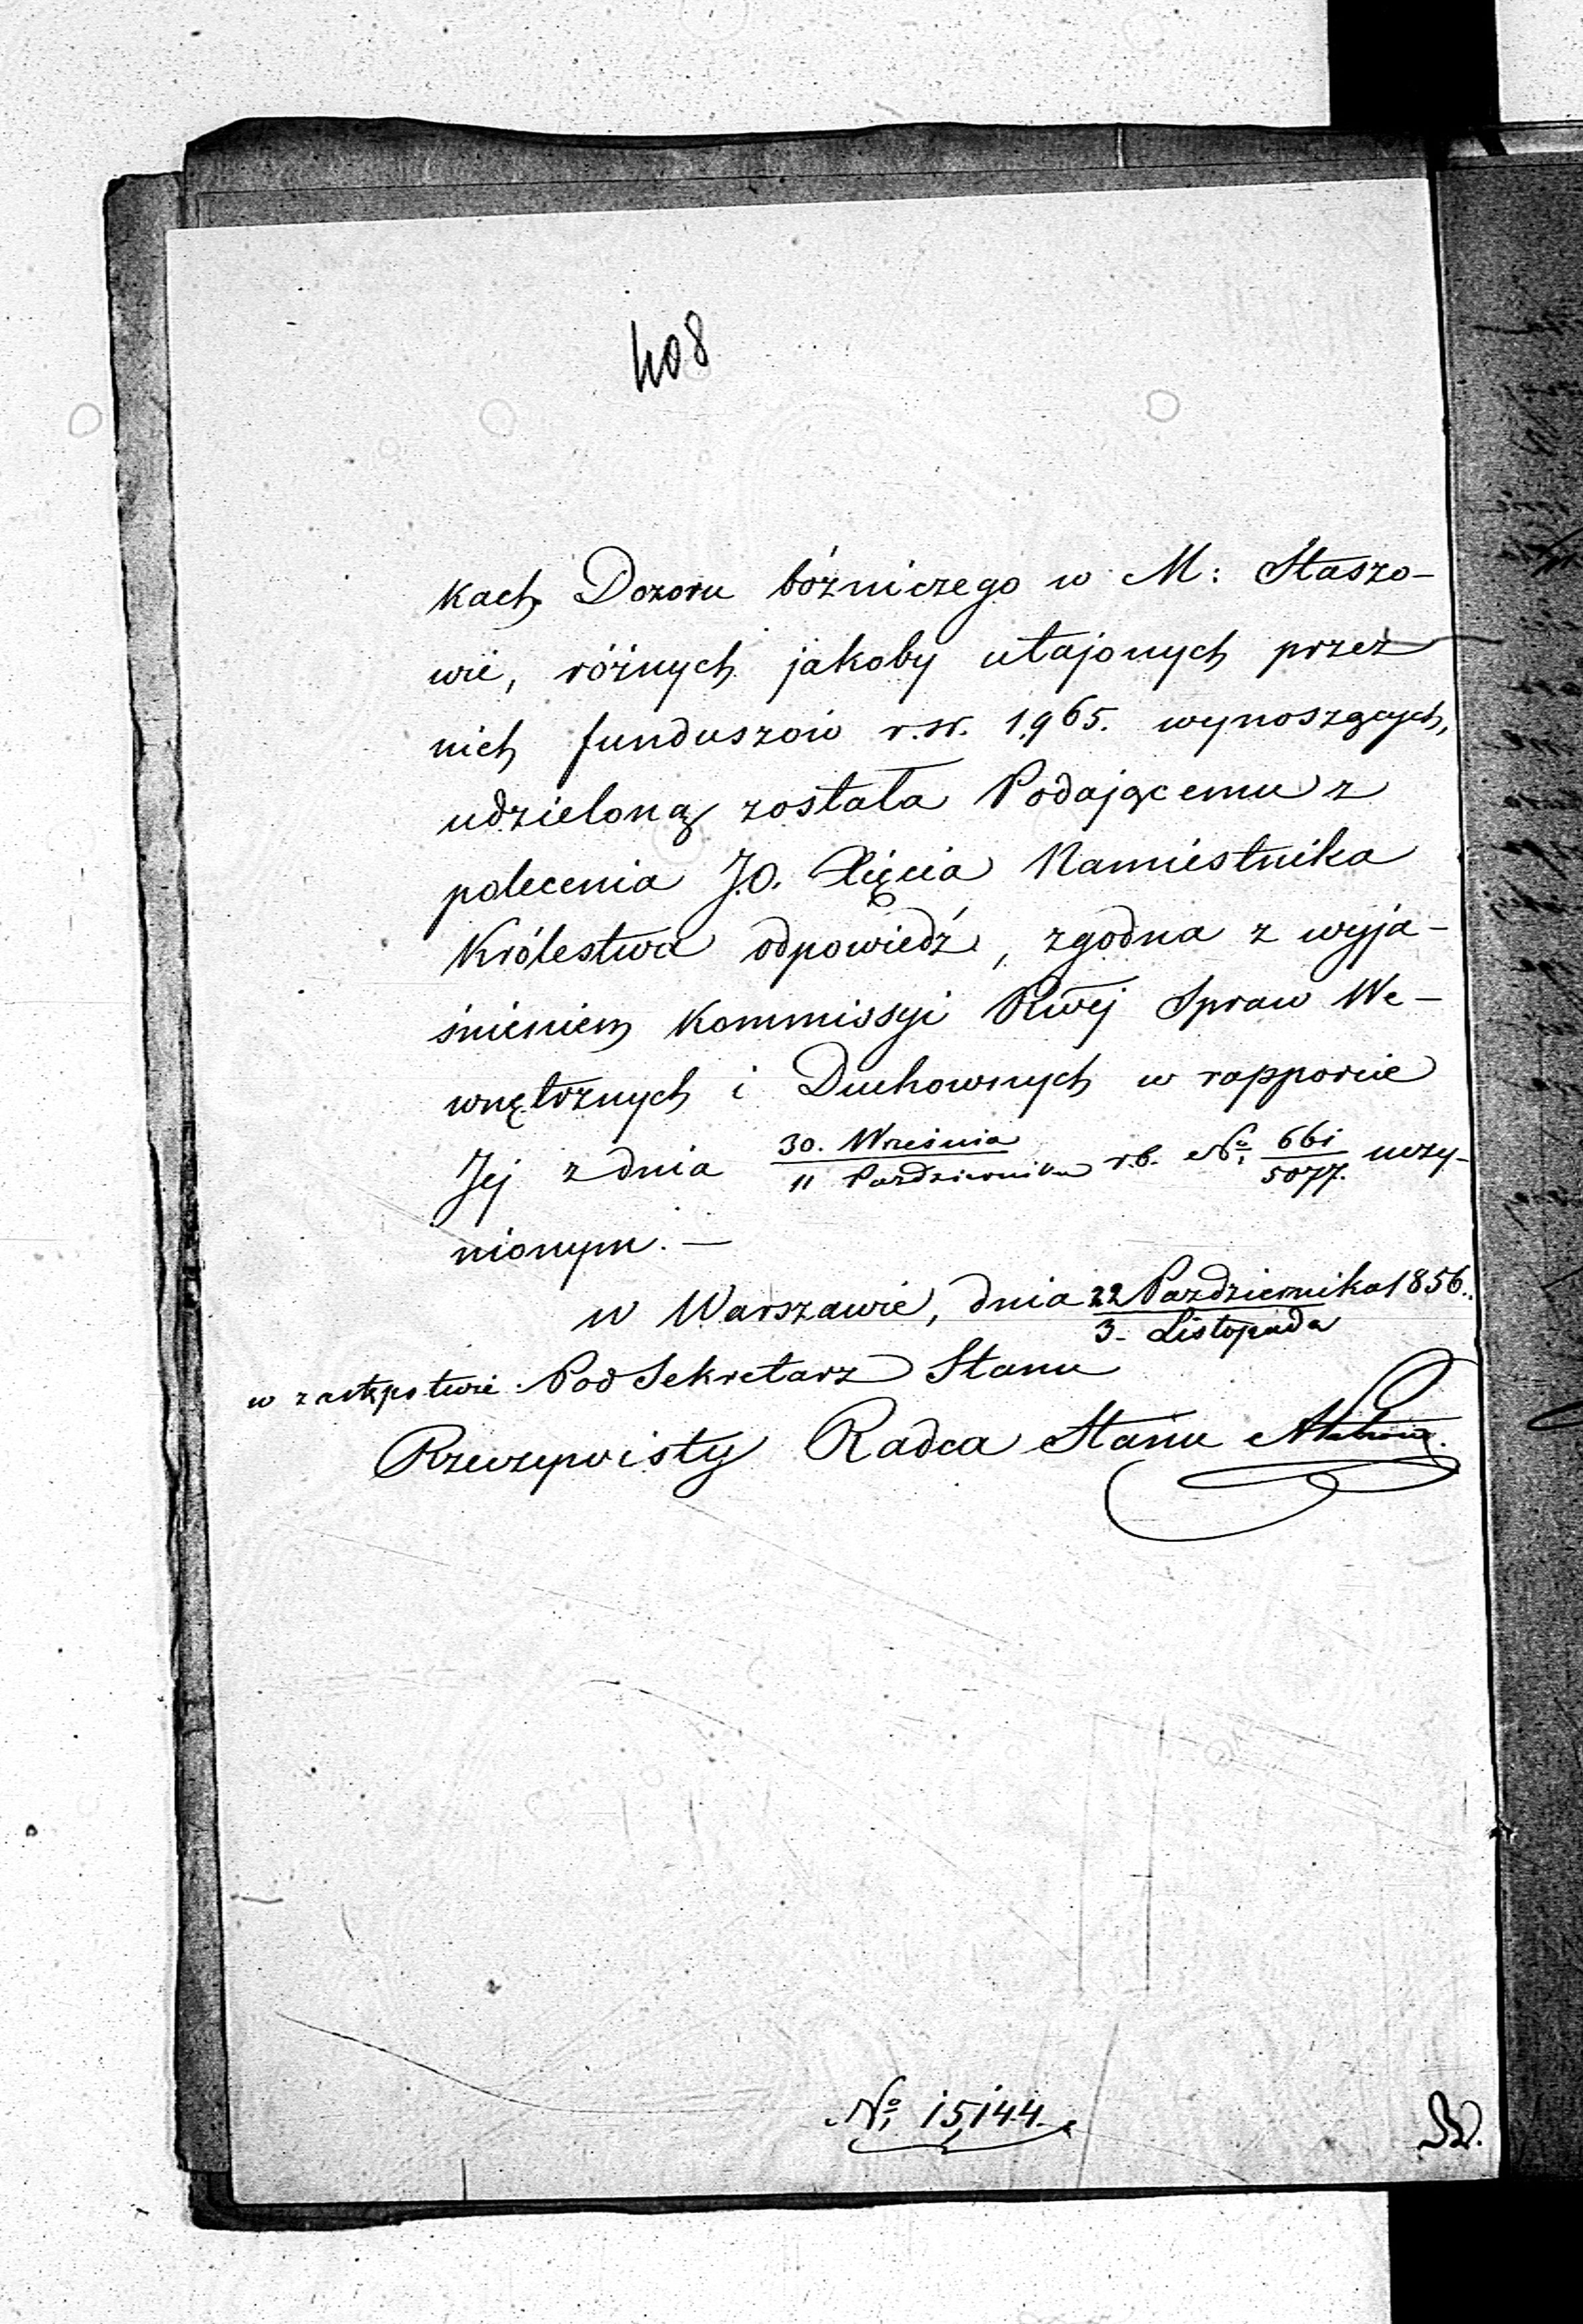 408
kach Dozoru bóżniczego w M: Staszo-
wie, różnych jakoby utajonych przez
nich funduszów r.sr. 1,965. wynoszących,
udzieloną została Podającemu z
polecenia J.O. Xięcia Namiestnika
Królestwa odpowiedź, zgodna z wyja-
śnieniem Kommissyi Rwej Spraw We-
wnętrznych i Duchownych w rapporcie
Jej z dnia 30. Września / 11 Października r.b. No 661 / 5077. uczy-
nionym. —
w Warszawie, dnia 22 Października / 3- Listopada 1856.
w zastępstwie Pod Sekretarz Stanu
Rzeczywisty Radca Stanu
No 15,144.